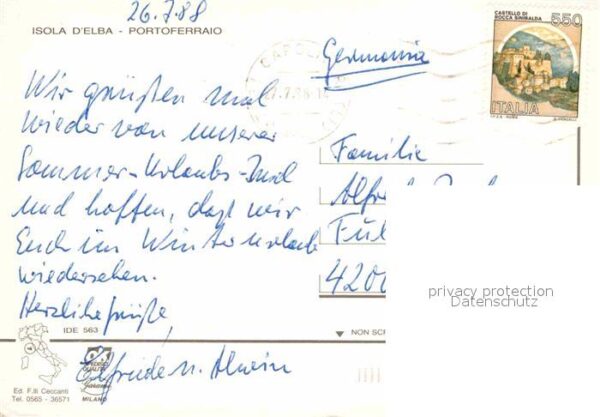 26.7.88
ISOLA D'ELBA - PORTOFERRAIO
CASTELLO DI
ROCCA SINIBALDA
550
ITALIA
I.P.Z.S. - ROMA
Germania
Wir grüßen mal
wieder von unserer
Sommer-Urlaubs-Insel
und hoffen, daß wir
Euch im Winterurlaub
wiedersehen.
Herzliche Grüße,
Elfriede u. Alwin
Familie
Alfred
4200
privacy protection
Datenschutz
IDE 563
▼ NON SCR
Ed. F.lli Ceccanti
Tel. 0565 - 36571
MILANO